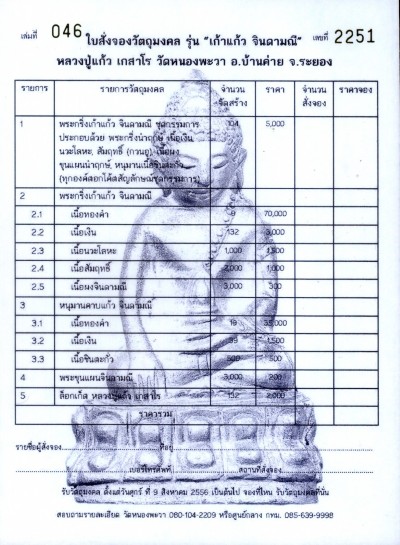 เล่มที่ 046 ใบสั่งจองวัตถุมงคล รุ่น "เก้าแก้ว จินดามณี" เลขที่ 2251
หลวงปู่แก้ว เกสาโร วัดหนองพะวา อ.บ้านค่าย จ.ระยอง
รายการ รายการวัตถุมงคล จำนวนจัดสร้าง ราคา จำนวนสั่งจอง ราคาจอง
1 พระกริ่งเก้าแก้ว จินดามณี ชุดกรรมการ 104 5,000
ประกอบด้วย พระกริ่งนำฤกษ์ เนื้อเงิน
นวะโลหะ, สัมฤทธิ์ (กวนอู) เนื้อผง
ขุนแผนนำฤกษ์, หนุมานเนื้อชินตะกั่ว
(ทุกองค์ตอกโค๊ตสัญลักษณ์ชุดกรรมการ)
2 พระกริ่งเก้าแก้ว จินดามณี
2.1 เนื้อทองคำ 70,000
2.2 เนื้อเงิน 132 3,000
2.3 เนื้อนวะโลหะ 1,000 1,500
2.4 เนื้อสัมฤทธิ์ 2,000 1,000
2.5 เนื้อผงจินดามณี 3,000 300
3 หนุมานคาบแก้ว จินดามณี
3.1 เนื้อทองคำ 19 35,000
3.2 เนื้อเงิน 99 1,500
3.3 เนื้อชินตะกั่ว 500 500
4 พระขุนแผนจินดามณี 3,000 200
5 ล็อกเก็ต หลวงปู่แก้ว เกสาโร 132 2,000
ราคารวม
รายชื่อผู้สั่งจอง ที่อยู่
เบอร์โทรศัพท์ สถานที่สั่งจอง
รับวัตถุมงคล ตั้งแต่วันศุกร์ ที่ 9 สิงหาคม 2556 เป็นต้นไป จองที่ไหน รับวัตถุมงคลที่นั่น
สอบถามรายละเอียด วัดหนองพะวา 080-104-2209 หรือศูนย์กลาง กทม. 085-639-9998